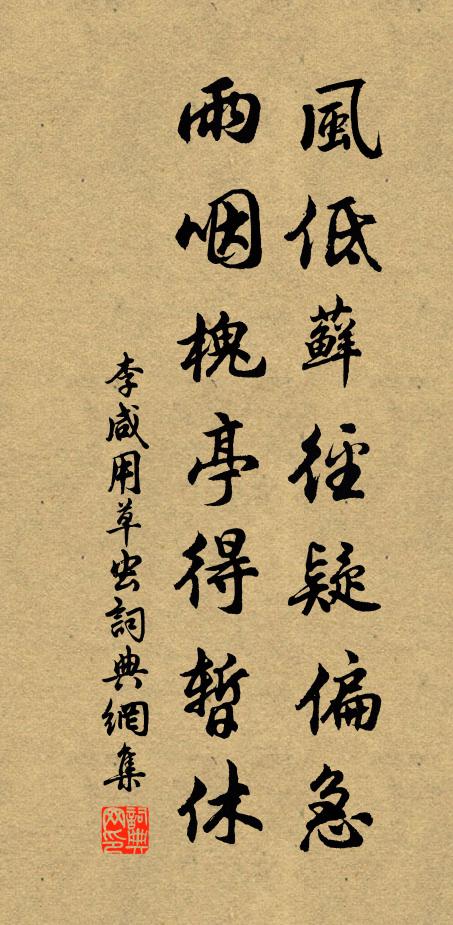 風低蘚徑疑偏急
雨咽槐亭得暫休
李咸用草虫詞典網集
詞典网印